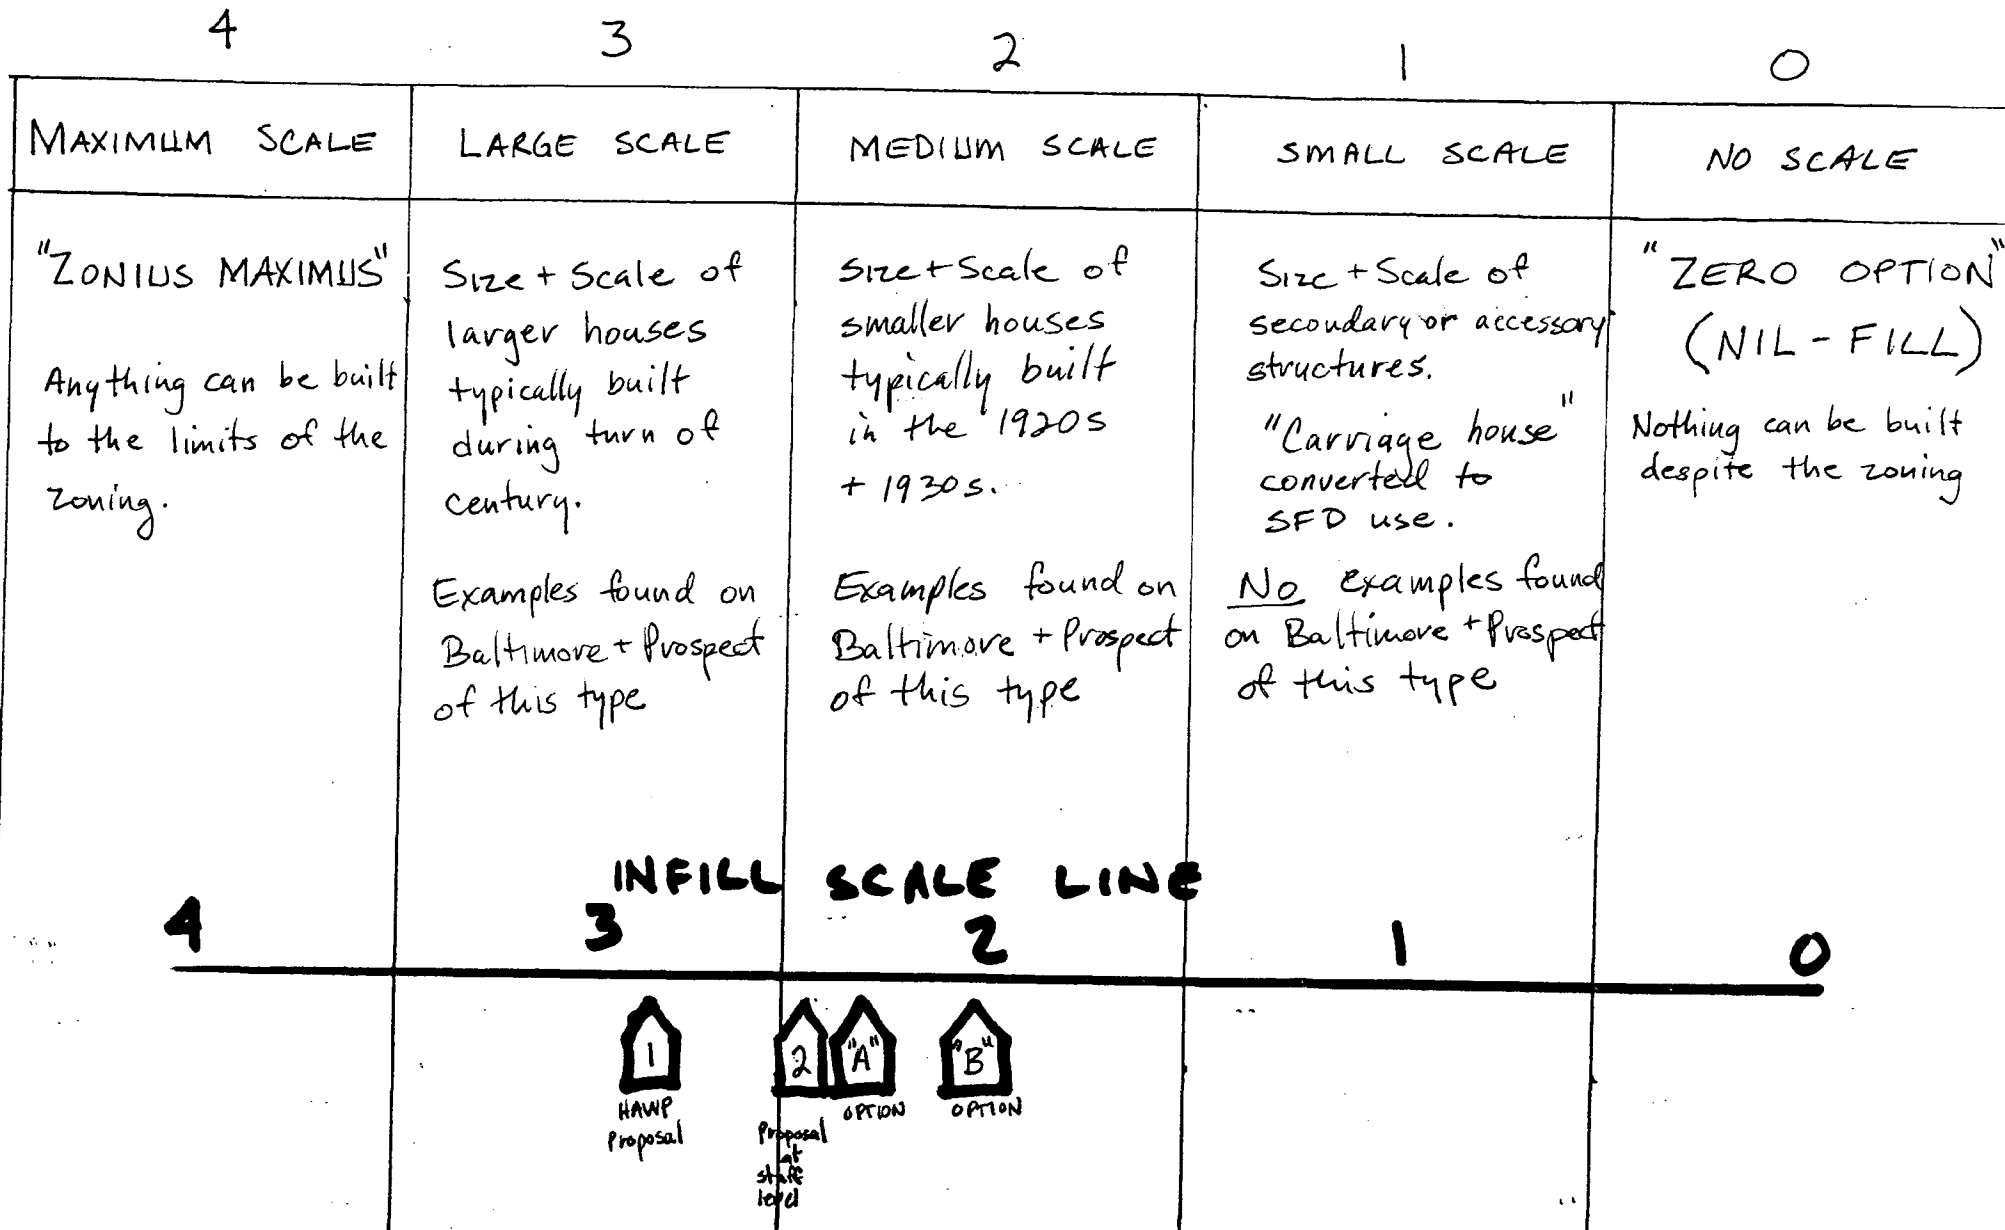 4
3
2
1
0
MAXIMUM SCALE
LARGE SCALE
MEDIUM SCALE
SMALL SCALE
NO SCALE
"ZONIUS MAXIMUS"
Anything can be built
to the limits of the
zoning.
Size + Scale of
larger houses
typically built
during turn of
century.
Examples found on
Baltimore + Prospect
of this type
Size + Scale of
smaller houses
typically built
in the 1920s
+ 1930s.
Examples found on
Baltimore + Prospect
of this type
Size + Scale of
secondary or accessory
structures.
"Carriage house"
converted to
SFD use.
No examples found
on Baltimore + Prospect
of this type
"ZERO OPTION"
(NIL-FILL)
Nothing can be built
despite the zoning
INFILL SCALE LINE
4
3
2
1
0
1
HAWP
Proposal
2
Proposal
at
staff
level
"A"
OPTION
"B"
OPTION